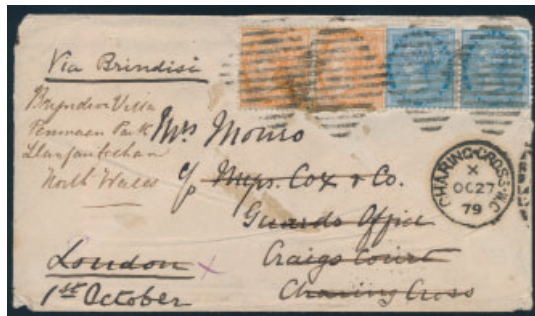 Via Brindisi
Bryndinas Villa
Penmaen Park
Llanfairfechan
North Wales
Mrs Monro
c/o Messrs. Cox & Co.
Guards Office
Craigs Court
Charing Cross
London x
1st October
CHARING-CROSS-W.C
X
OC27
79